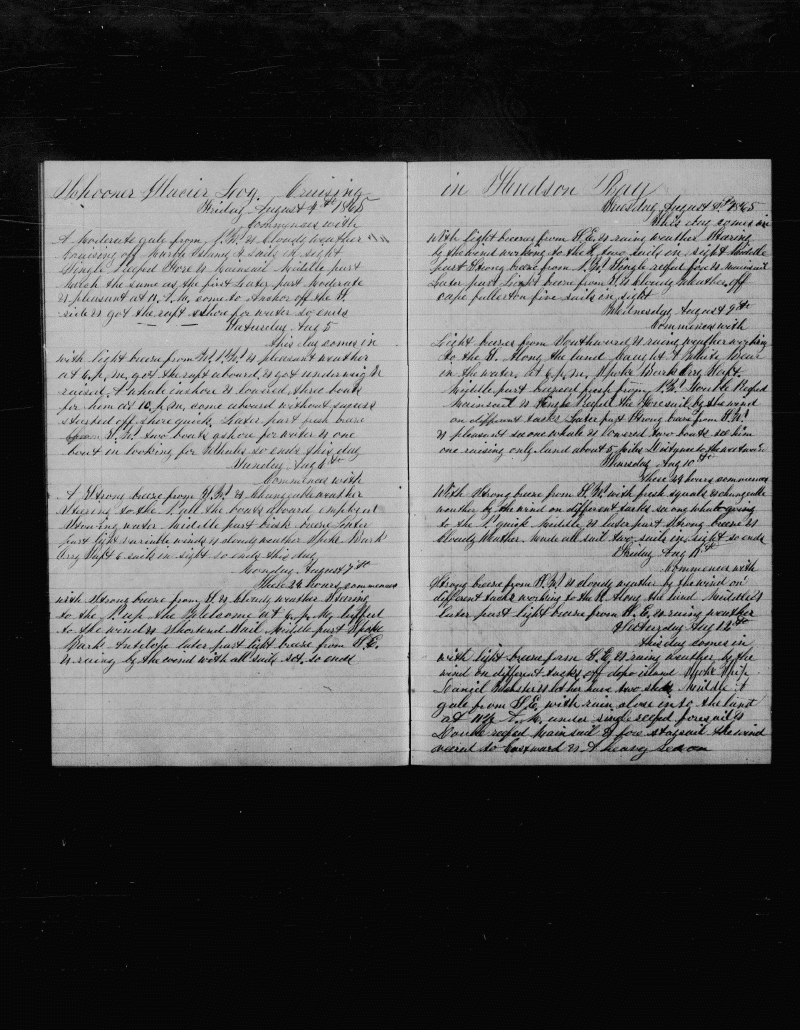 Schooner Glacier Log. Cruising
Friday August 4th 1865
Commences with
A Moderate gale from N.W. & cloudy weather
Cruising off Marble Island 4 sails in sight
Single reefed Fore & Mainsail Middle part
Much the same as the first Later part Moderate
& pleasant at 11, A.M. come to Anchor off the
side & got the raft ashore for water so ends
Saturday Aug 5
This day comes in
with light breeze from N.W. & pleasant weather
at 6, p.m. got the raft aboard & got underweigh
raised A whale inshore & lowered three boats
for him at 10, p.m. come aboard without sucess
started off shore quick Later part fresh breeze
from two boats ashore for water & one
boat in looking for Whales so ends this day
Sunday Aug 6th
Commences with
A Strong breeze from & changeable weather
steering to the all the boats aboard employed
Stowing water Middle part brisk breeze Later
part light variable winds & cloudy weather Spoke Bark
Orry Taft 6 sails in sight so ends this day
Monday August 7th
These 24 hours commences
with Strong breeze from & cloudy weather Steering
to the up the Welcome at p.m.
to the wind & shortend Sail Middle part Spoke
Bark Antelope later part light breeze from S.E.
& rainy by the wind with all sails set so ends
in Hudson Bay
Tuesday August 8th 1865
This day comes in
with light breeze from S.E. & rainy weather
by the wind working to the two sails in sight Middle
part Strong breeze from Single reefed fore & Mainsail
Later part Light breeze from & cloudy weather off
cape fullerton five sails in sight
Wednesday August 9th
Commences with
Light breeze from Southward & rainy weather working
to the along the land Caught A White Bear
in the water at 6, p.m. Spoke Bark Orry Taft
Middle part breezed fresh from Double Reefed
Mainsail & Single Reefed the Foresail by the wind
on different tacks Later part Strong breeze from
& pleasant saw one whale & lowered two boats for him
one raising only land about 5 miles Distance to the westward
Thursday Aug 10th
These 24 hours commences
With Strong breeze from with fresh squalls & changeable
weather by the wind on different tacks saw one whale going
to the quick Middle & later part Strong breeze &
cloudy weather Made all sail two sails in sight so ends
Friday Aug 11th
Commences with
Strong breeze from & cloudy weather by the wind on
different tacks working to the along the land Middle &
later part light breeze from & rainy weather
Saturday Aug 12th
This day comes in
with light breeze from S.E. & rainy weather by the
wind on different tacks off depo island Spoke Ship
Daniel Webster her have two Middle
gale from S.E. with rain close in to the land
at under single reefed foresail &
Double reefed Mainsail & fore staysail the wind
veered to Eastward & A heavy Sea on